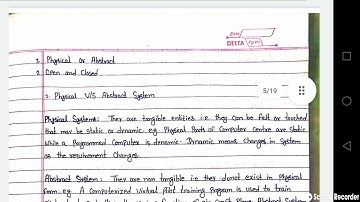 Date
DELTA Pg No
1. Physical or Abstract
2. Open and Closed
5/19
1. Physical V/S Abstract System
Physical Systems: They are tangible entities i.e they can be felt or touched
that may be static or dynamic eg. Physical Parts of Computer Centre are static
While a Programmed Computer is dynamic. Dynamic means Changes in System
as the requirement Changes.
Abstract System: They are non tangible i.e they donot exist in Physical
form eg. A Computerized Virtual Pilot training Program is used to train
Screen Recorder